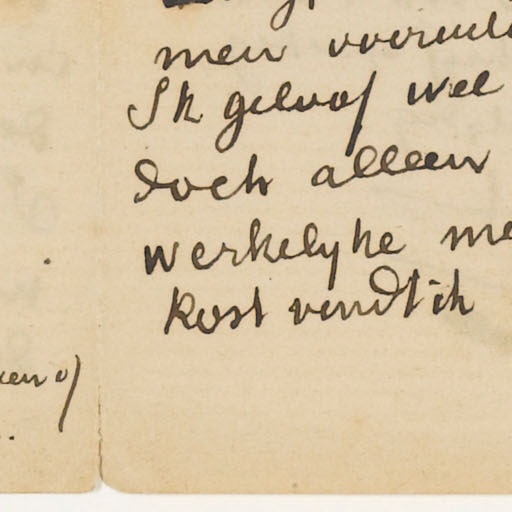 men vooruit
Ik geloof wel
doch alleen
werkelyke me
kost vindt ik
ken of